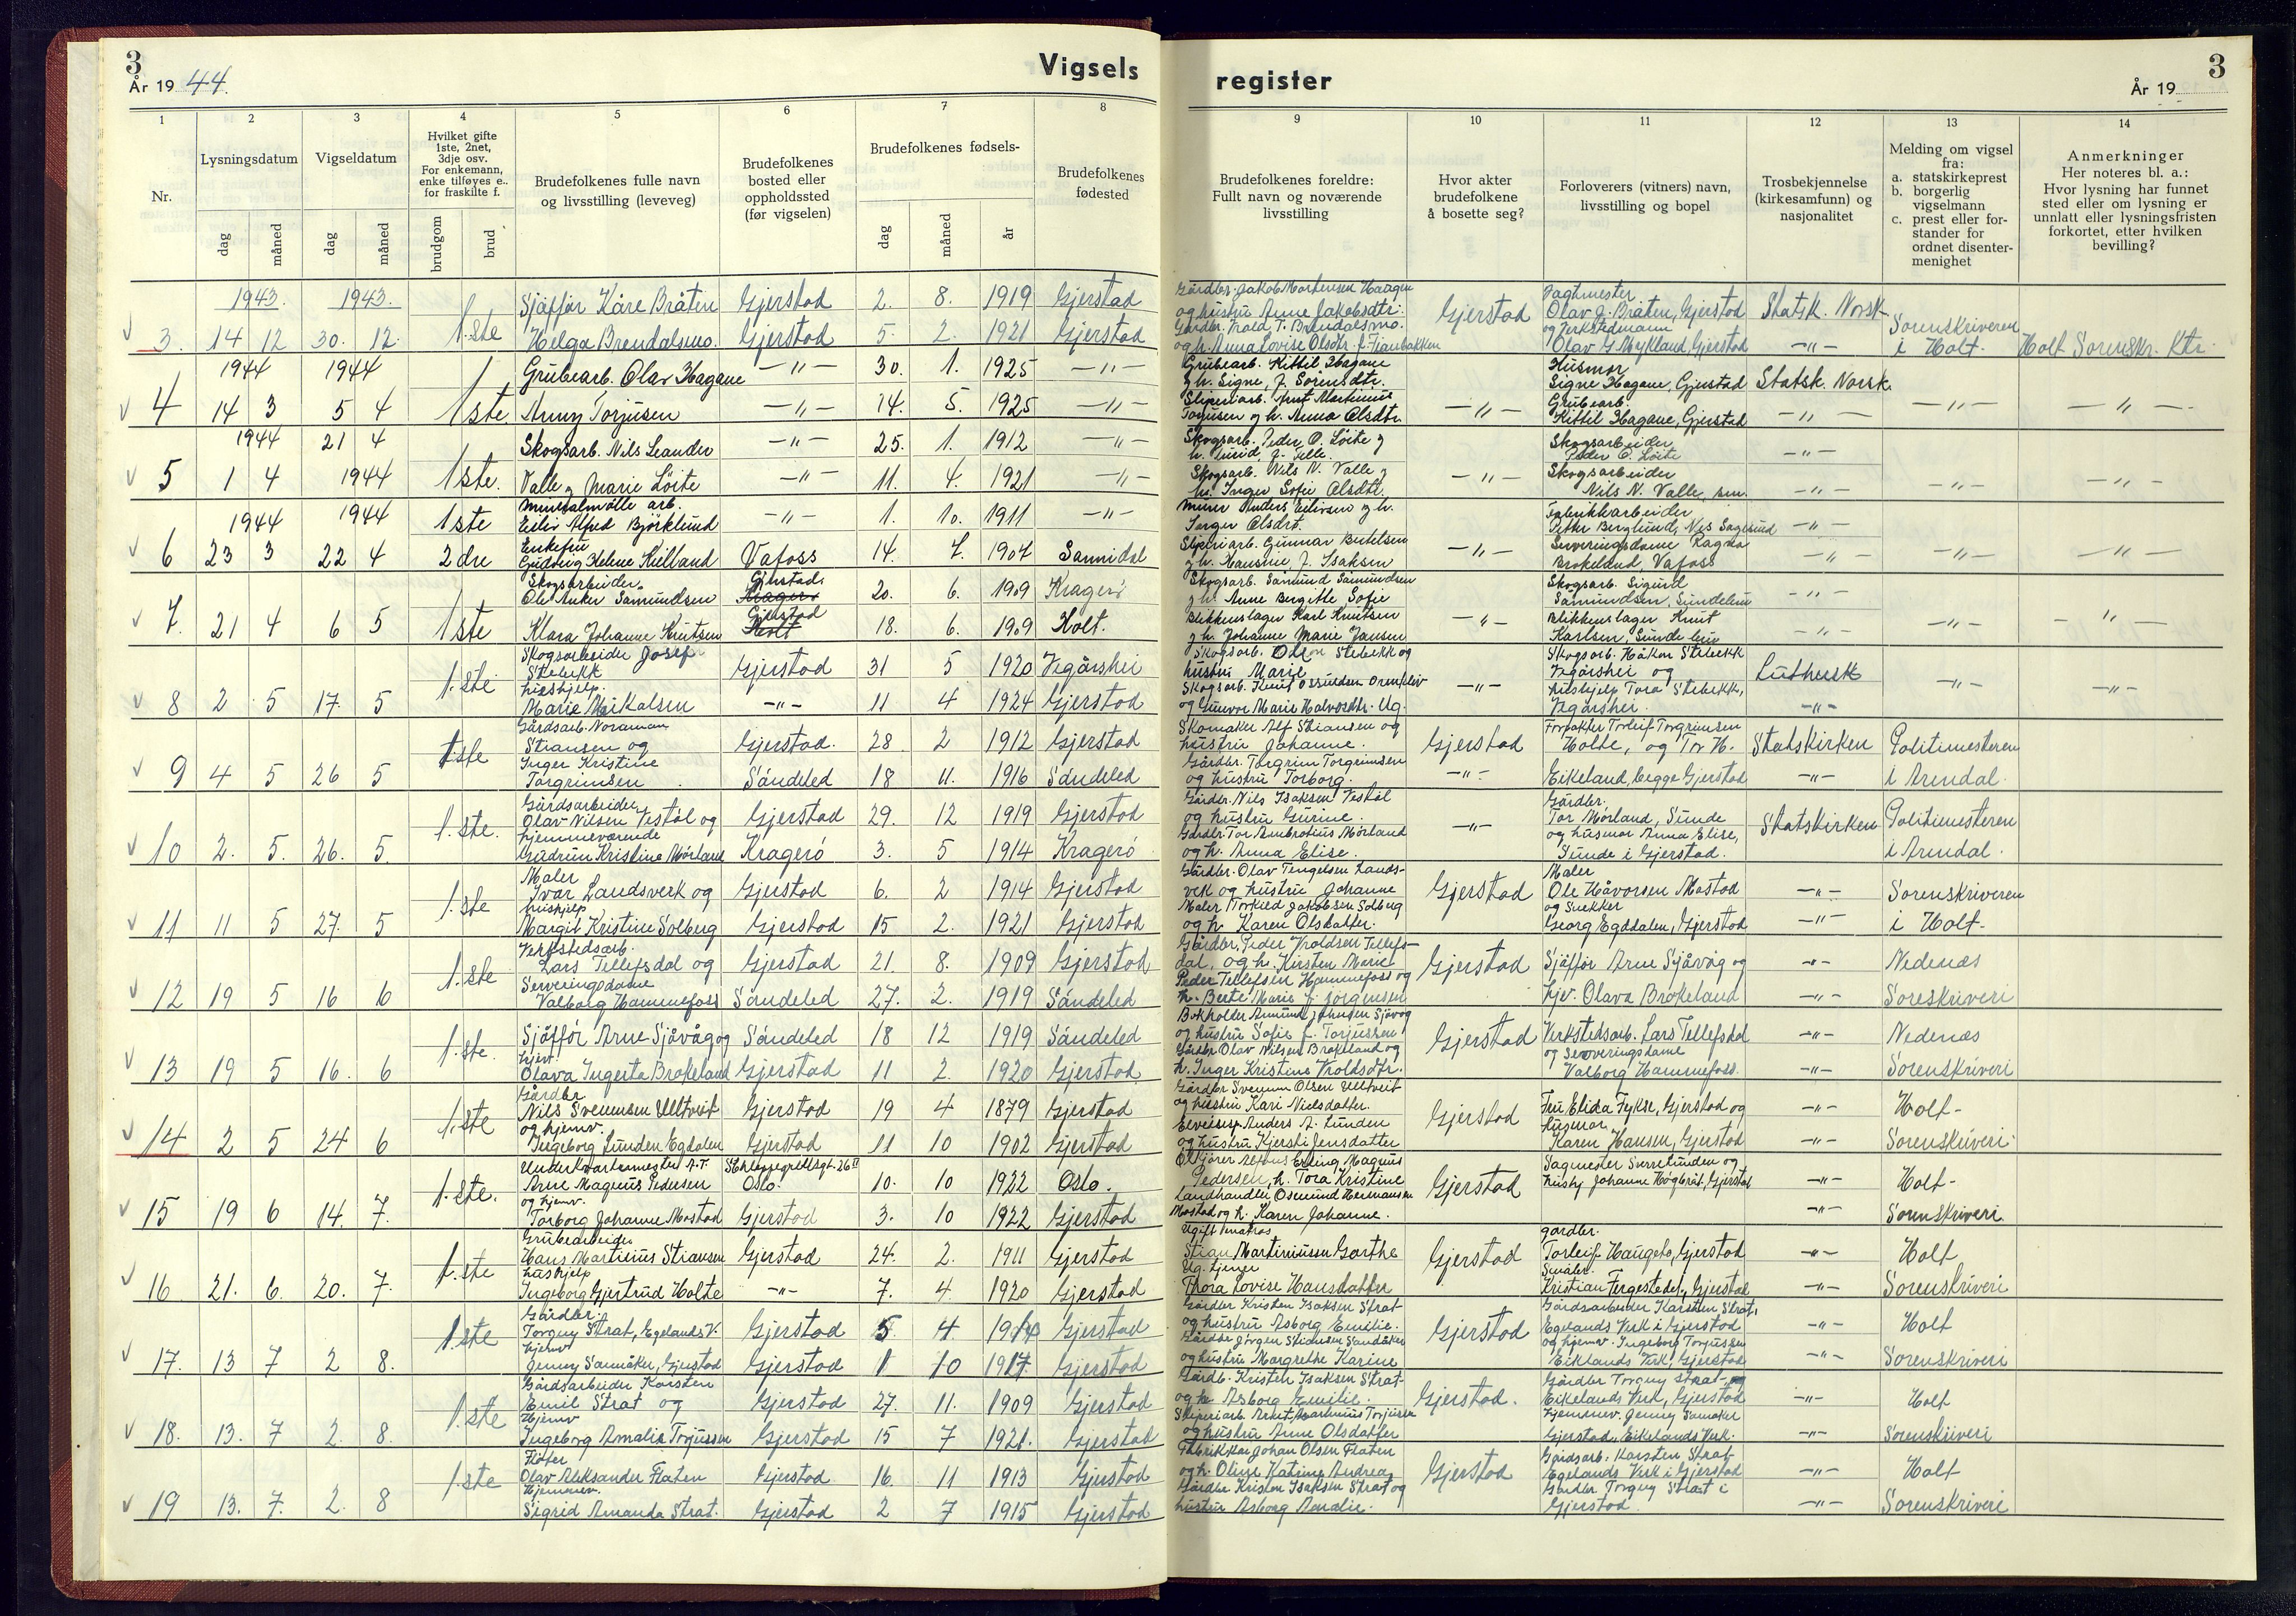 3
År 19 44.
Vigsels
register
År 19
3
1
2
3
4
5
6
7
8
9
10
11
12
13
14
Nr.
Lysningsdatum
Vigseldatum
Hvilket gifte
1ste, 2net,
3dje osv.
For enkemann,
enke tilføyes e..
for fraskilte f.
Brudefolkenes fulle navn
og livsstilling (leveveg)
Brudefolkenes
bosted eller
oppholdssted
(før vigselen)
Brudefolkenes fødsels-
Brudefolkenes
fødested
dag
måned
dag
måned
brudgom
brud
dag
måned
år
Brudefolkenes foreldre:
Fullt navn og noværende
livsstilling
Hvor akter
brudefolkene
å bosette seg?
Forloverers (vitners) navn,
livsstilling og bopel
Trosbekjennelse
(kirkesamfunn) og
nasjonalitet
Melding om vigsel
fra:
a. statskirkeprest
b. borgerlig
vigselmann
c. prest eller for-
stander for
ordnet disenter-
menighet
Anmerkninger
Her noteres bl. a.:
Hvor lysning har funnet
sted eller om lysning er
unnlatt eller lysningsfristen
forkortet, etter hvilken
bevilling?
1943. 1943.
Sjåffør Kåre Bråten Gjerstad 2. 8. 1919 Gjerstad
3. 14 12 30. 12. 1.ste Helga Brendalsmo. Gjerstad 5. 2. 1921 Gjerstad
Gårdbr. Jakob Mortensen Haagen
og hustru Anne Jakobsdtr.
Gårdbr. Trold T. Brendalsmo.
og h. Anna Lovise Olsdtr.
Gjerstad
Vagtmester
Olav J. Bråten, Gjerstad
og Verkstedmann
Olav G. Mykland, Gjerstad
Statsk. Norsk
—"—
Sorenskriveren
i Holt.
Holt Sorenskr. Ktr.
1944 1944
Grubearb. Olav Hagane —"— 30. 1. 1925 —"—
4 14 3 5 4 1ste. Anny Torjusen —"— 14. 5. 1925 —"—
Grubearb. Kittil Hagane
og h. Signe, f. Sørensdtr.
Sliperiarb. Arnt Martinius
Torjusen og h. Anna Olsdtr.
—"—
Husmor
Signe Hagane, Gjerstad
Grubearb.
Kittil Hagane, Gjerstad
Statsk. Norsk.
—"—
—"—
—"—
1944 21 4
Skogsarb. Nils Leander —"— 25. 1. 1912 —"—
5 1 4 1944 1ste. Valle og Marie Löite —"— 11. 4. 1921 —"—
Skogsarb. Peder O. Löite og
Skogsarb. Nils N. Valle og
h. Inger Sofie Olsdtr.
—"—
Skogsarbeider
Peder O. Löite
Skogsarbeider
Nils N. Valle, sen.
—"—
—"—
—"—
—"—
1944 1944
Mineralmølle arb.
1ste Eiliv Alfred Björklund —"— 1. 10. 1911 —"—
6 23 3 22 4 2dre Enkefru
Gudveig Helene Killand Vafoss 14. 7. 1907 Sannidal
Murer Anders Eilivsen og h.
Inger Olsdtr.
Sliperiarb. Gunnar Bertelsen
og h. Hansine, f. Isaksen
—"—
Fabrikkarbeider
Petter Berglund, Nes Sagesund
Serveringsdame Ragna
Brokeland, Vafoss
—"—
—"—
—"—
—"—
Skogsarbeider
Ole Anker Samundsen Gjerstad. Kragerö 20. 6. 1909 Kragerö
7. 21 4 6 5 1ste Klara Johanne Knutsen Gjerstad Holt 18. 6. 1909 Holt.
Skogsarb. Samund Samundsen
og h. Anne Bergitte Sofie
Blikkenslager Karl Knutsen
og h. Johanne Marie Jansen
—"—
Skogsarb. Sigurd
Samundsen, Sundeleiv
Blikkenslager Knut
Karlsen, Sundeleiv
—"—
—"—
—"—
—"—
Skogsarbeider Josef
Stebekk Gjerstad 31 5 1920 Vegårshei
8 2 5 17. 5 1.ste hushjelp.
Marie Mikalsen —"— 11 4 1924 Gjerstad
Skogsarb. Olen Stebekk og
hustru Marie
og Gunvor Marie Halvorsdtr. Ug.
—"—
Skogsarb. Håkon Stebekk
Vegårshei og
hushjelp Tora Stebekk,
Vegårshei.
Luthersk
—"—
—"—
—"—
Gårdsarb. Noraman
Stiansen og Gjerstad. 28 2 1912 Gjerstad
9 4 5 26 5 1ste Inger Kristine
Torgrimsen Söndeled 18 11. 1916 Söndeled
Skomaker Alf Stiansen og
hustru Johanne.
Gårdbr. Torgrim Torgrimsen
og hustru Torborg.
Gjerstad
—"—
Forpakter Torleif Torgrimsen
Holte, og Tor H.
Eikeland, begge Gjerstad
Statskirken
—"—
Politimesteren
i Arendal.
Gårdsarbeider
Olav Nilsen Vestöl og Gjerstad 29. 12 1919 Gjerstad
10 2. 5. 26. 5. 1.ste. hjemmeværende
Gudrun Kristine Mörland Kragerö 3. 5 1914 Kragerö
Gårdbr. Nils Isaksen Vestöl
og hustru Gurine.
Gårdbr. Tor Ambrotius Mörland
og h. Anna Elise.
—"—
Gårdbr.
Tor Mörland, Sunde
og husmor Anna Elise,
Sunde i Gjerstad.
Statskirken
Politimesteren
i Arendal.
Maler
Ivar Landsverk og Gjerstad 6. 2 1914 Gjerstad
11 11 5 27. 5 1.ste hushjelp
Margit Kristine Solberg Gjerstad 15 2. 1921 Gjerstad
Gårdbr. Olav Tengelsen Lands-
verk og hustru Johanne
Maler Torkild Jakobsen Solberg
og h. Karen Olsdatter.
Gjerstad
Maler
Ole Håvorsen Mostad
og Snekker
Georg Egddalen, Gjerstad
—"—
—"—
Sorenskriveren
i Holt.
Verkstedsarb.
Lars Tellefsdal og Gjerstad 21. 8. 1909 Gjerstad
12 19 5 16 6 1.ste Serveringsdame
Valborg Hammefoss Söndeled 27. 2. 1919 Söndeled
Gårdbr. Peder Troldsen Tellefs-
dal, og h. Kirsten Marie
Peder Tellefsen Hammefoss og
h. Berte Marie f. Jörgensen
Gjerstad
Sjåffør Arne Sjåvåg og
hjv. Olava Brokeland
—"—
—"—
Nedenæs
Soreskriveri
Sjåffør Arne Sjåvåg og Söndeled 18 12 1919 Söndeled
13 19 5 16. 6 1.ste. hjev.
Olava Ingerta Brokeland Gjerstad 11 2. 1920 Gjerstad.
og hustru Sofie f. Torjussen
Gårdbr. Olav Nilsen Brokeland og
h. Inger Kristine Troldsdtr.
Gjerstad
Verkstedsarb. Lars Tellefsdal
og Serveringsdame
Valborg Hammefoss.
—"—
—"—
Nedenæs
Sorenskriveri
Gårdbr
Nils Svennsen Ulltveit Gjerstad 19 4 1879 Gjerstad
14 2 5 24 6 1.ste og hjemv.
Ingeborg Lunden Egdalen Gjerstad 11 10 1902 Gjerstad
Gårdbr Svennun Olsen Ulltveit
og hustru Kari Nielsdatter.
Anders A. Lunden
og hustru Kjersti Jensdatter
Gjerstad
Fru Elida Fykse, Gjerstad og
husmor
Karen Hansen, Gjerstad
—"—
—"—
Holt-
Sorenskriveri.
Underkvartermester A.T.
Arne Magnus Pedersen Schleppegrellsgt. 26 II Oslo. 10. 10 1922 Oslo.
15 19 6 14. 7. 1.ste. og hjemv.
Torborg Johanne Mostad Gjerstad 3. 10 1922 Gjerstad
Alfons Erling Magnus
Pedersen, h. Tora Kristine
Landhandler Osmund Hermansen
Mostad og h. Karen Johanne.
Gjerstad
Sagmester Sverre Lunden og
hushj Johanne Höghråt, Gjerstad
—"—
—"—
Holt-
Sorenskriveri
Grubearbeider
Hans Martinius Stiansen Gjerstad 24. 2. 1911 Gjerstad
16 21. 6. 20. 7. 1.ste hushjelp
Ingeborg Gjertrud Holte —"— 7. 4. 1920 Gjerstad
Ugift matros
Stian Martiniussen Garthe
Ug. tjener
Thora Lovise Hansdatter
Gjerstad
gardbr.
Torleif Haugeto, Gjerstad
Småbr.
Kristian Fergestedet, Gjerstad
—"—
—"—
Holt
Sorenskriveri
Gårdbr.
Torguy Strat, Egelands V. Gjerstad 5 4 1914 Gjerstad
17. 13 7 2 8. 1ste hjemv
Jenny Sanåker, Gjerstad Gjerstad 1 10 1917. Gjerstad
Gårdbr Kristen Isaksen Strat
og hustru Asborg Emilie.
Gårdbr Jörgen Stiansen Sandåker
og hustru Margrethe Karine
Gjerstad
Gårdsarbeider Karsten Strat,
Egelands Verk i Gjerstad
og hjemv. Ingeborg Torjussen
Eiklands Verk, Gjerstad
—"—
—"—
Holt
Sorenskriveri
Gårdsarbeider Karsten
Emil Strat og Gjerstad 27. 11. 1909 Gjerstad
18. 13. 7 2. 8. 1.ste Hjemv
Ingeborg Amalie Torjussen Gjerstad 15 7 1921. Gjerstad
Gårdb. Kristen Isaksen Strat
og h. Asborg Emilie.
Sliperiarb. Arnt Martinius Torjusen
og hustru Anne Olsdatter
Gjerstad.
Gårdbr Torguy Strat og
Eikelands Verk, Gjerstad
Hjemmev. Jenny Sanåker
Gjerstad, Eikelands Verk.
—"—
—"—
Holt
Sorenskriveri
Fløter
Olav Aleksander Flaten Gjerstad 16. 11 1913 Gjerstad
19 13. 7. 2. 8 1ste Hjemmev.
Sigrid Amanda Strat. Gjerstad 2 7 1915 Gjerstad
Fabrikkar Johan Olsen Flaten
og h. Oline Katrine Andrea
Gårdbr Kristen Isaksen Strat og
hustru Asborg Amalie.
Gjerstad
Gårdsarb. Karsten Strat
Egelands Verk i Gjerstad
Gårdbr Torguy Strat i
Gjerstad.
—"—
—"—
Holt
Sorenskriveri